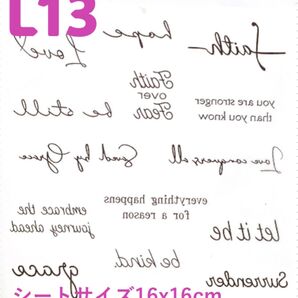 L13
hope
Love
faith
Faith
over
Fear
be still
you are stronger
than you know
Saved by Grace
Love conquers all
everything happens
for a reason
embrace the
journey ahead
let it be
be kind.
grace
Surrender
シートサイズ16x16cm